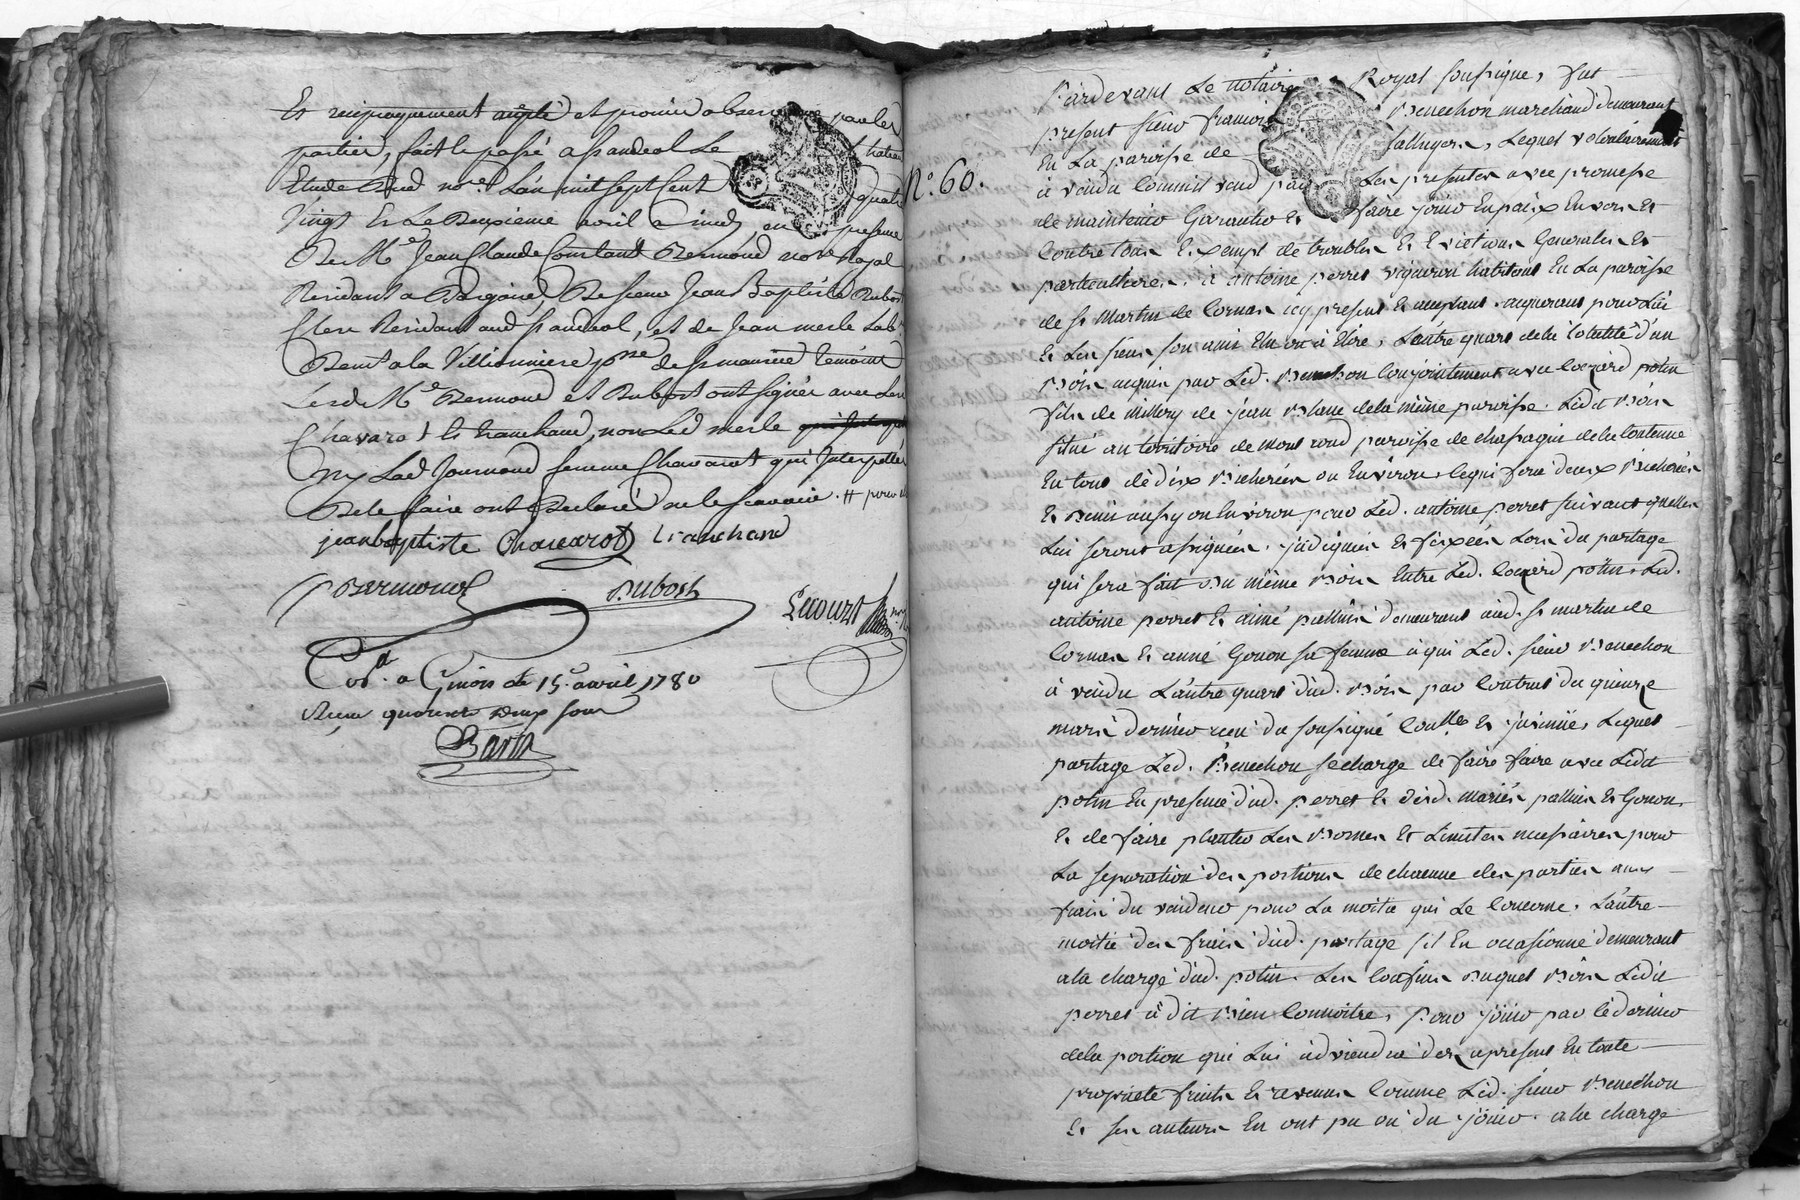 Et reciproquement accepté et promis observer par les
parties, fait & passé a st andeol Le
Etude dud no.re L'an mil sept cent quatre
Vingt Et Le Deuxieme avril a midy, en presence
De M.e Jean Claude Constant Bermond no.re Royal
Residant a Bagoire, De sieur Jean Baptiste Dubost
Clerc Residant aud st andeol, et de Jean merle
Dem.t a la Villionniere p.sse de st maurice temoins
Lesd. M.e Bermond et Dubost ont signés avec Les
Chavarot & tranchand, non Led merle
ny Lad Journoud femme Chavarot qui Interpellés
De le faire ont Declaré ne le scavoir
jean baptiste Chavarot tranchand
Bermond Dubost
Lecourt
a Givors le 15.e avril 1780
Reçu quarante deux sous
Barta
N.o 60.
Pardevant Le notaire Royal soussigné, fut
present sieur francois Benechon marchand demeurant
En La paroisse de Lequel volontairement
à vendu comme il vend par Les presentes avec promesse
de maintenir Garantir & faire jouir En paix Envers Et
Contre tous Exempt de troubles Et Evictions Generales Et
particulieres, à antoine perret vigneron habitant En La paroisse
de St Martin de Cornas icy present & acceptant, acquerant pour Lui
Et Les siens son ami Elu ou à Elire, L'autre quart de la totalité d'un
Bois acquis par Led. Benechon Conjointement avec
fils de Millery de jean Blanc de la même paroisse. Ledit Bois
situé au territoire de Mont rond paroisse de chassagni de la Contenue
En tout de dix Bicherées ou Environ, ce qui fera deux Bicherées
Et Demi aussy ou Environ pour Led. antoine perret suivant qu'elles
Lui seront assignées, indiquées Et fixées Lors du partage
qui sera fait du même Bois Entre Led. potin, Led.
antoine perret Et aimé demeurant aud. St martin de
Cornas Et anne Gonon sa femme à qui Led. sieur Benechon
à vendu L'autre quart dud. Bois par Contrat du quinze
mars dernier recu du soussigné Con.llé Et insinué, Lequel
partage Led. Benechon se charge de faire faire avec Ledit
potin En presence dud. perret Et desd. Mariés Et Gonon,
Et de faire planter Les Bornes Et Limites necessaires pour
La separation des portions de chacune des parties aux
frais du vendeur pour La moitié qui Le Concerne, L'autre
moitié des frais dud. partage s'il En occasionne demeurant
a la charge dud. potin. Les Confins duquel Bois Ledit
perret à dit Bien Connoitre, pour jouir par le dernier
de la portion qui Lui adviendra des apresent En toute
proprieté fruits Et revenus Comme Led. sieur Benechon
Et ses auteurs En ont pu ou du jouir. a la charge